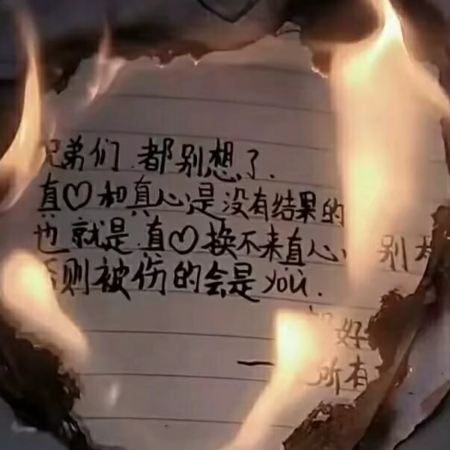 兄弟们.都别想了.
真♡和真心是没有结果的
也就是.真♡换不来真心,别
否则被伤的会是you.
好
一 所有